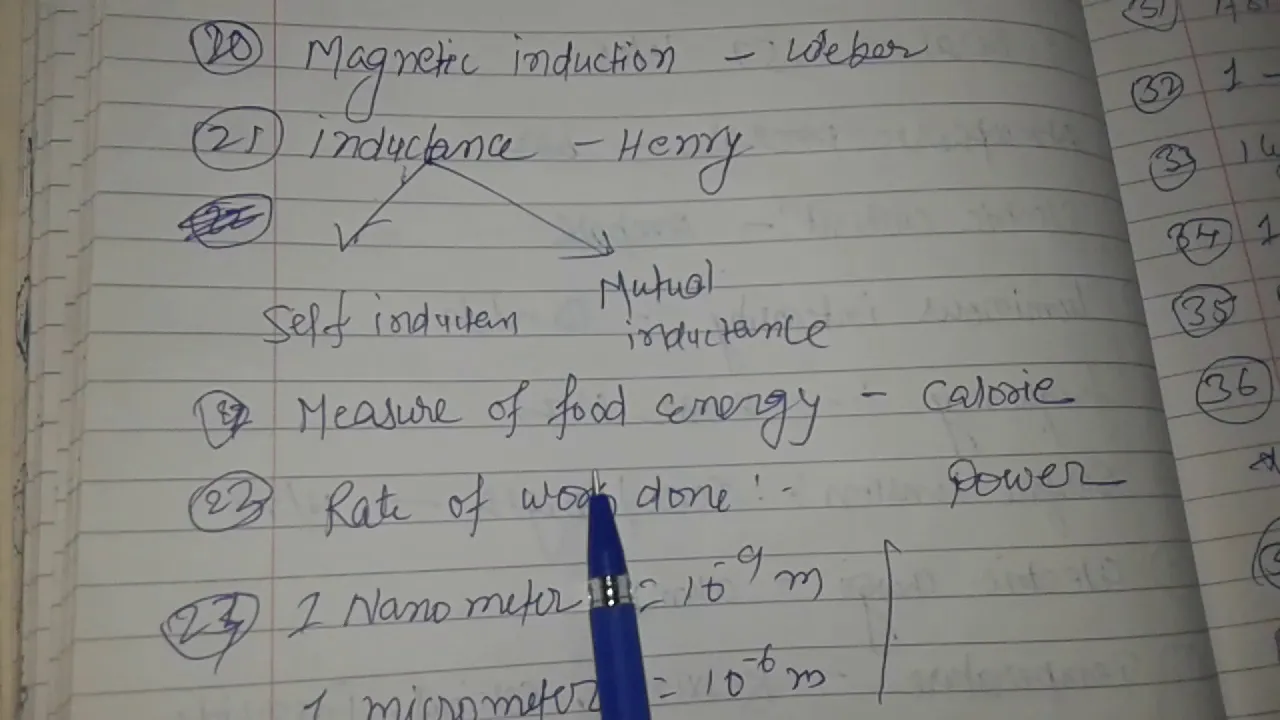 20 Magnetic induction - Weber
21 inductance - Henry
Mutual
Self inductan
inductance
Measure of food energy - Calorie
23 Rate of work done :- Power
1 Nano meter = 10⁻⁹ m
1 micrometer = 10⁻⁶ m
31
32 1 -
33 14
34 1
35
36